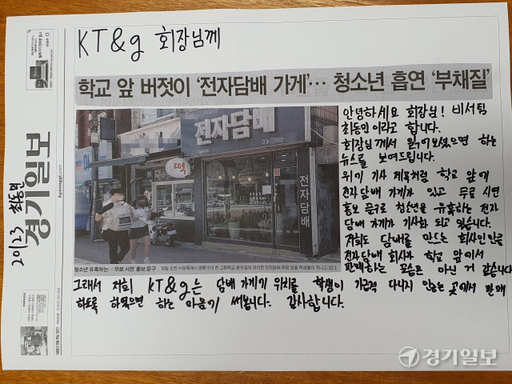 KT&g 회장님께
학교 앞 버젓이 '전자담배 가게'… 청소년 흡연 '부채질'
안녕하세요 회장님! 비서팀
최동민이라고 합니다.
회장님께서 읽어보셨으면 하는
뉴스를 보여드립니다.
위기 기사 제목처럼 학교 앞에
전자담배 가게가 있고 무료 시연
홍보 문구로 청소년을 유혹하는 전자
담배 가게가 기사화 되고 있습니다.
저희도 담배를 만드는 회사인만큼
전자담배 회사가 학교 앞에서
판매하는 모습은 아닌 거 같습니다
그래서 저희 KT&g는 담배 가게가 위치를 학생이 가급적 다니지 않는 곳에서 판매
하도록 하였으면 하는 마음에 써봅니다. 감사합니다.
전자담배
떡
전자담배
청소년 유혹하는… 무료 시연 홍보 문구
경기일보
kyeonggi.com
20123 최동민
경기일보